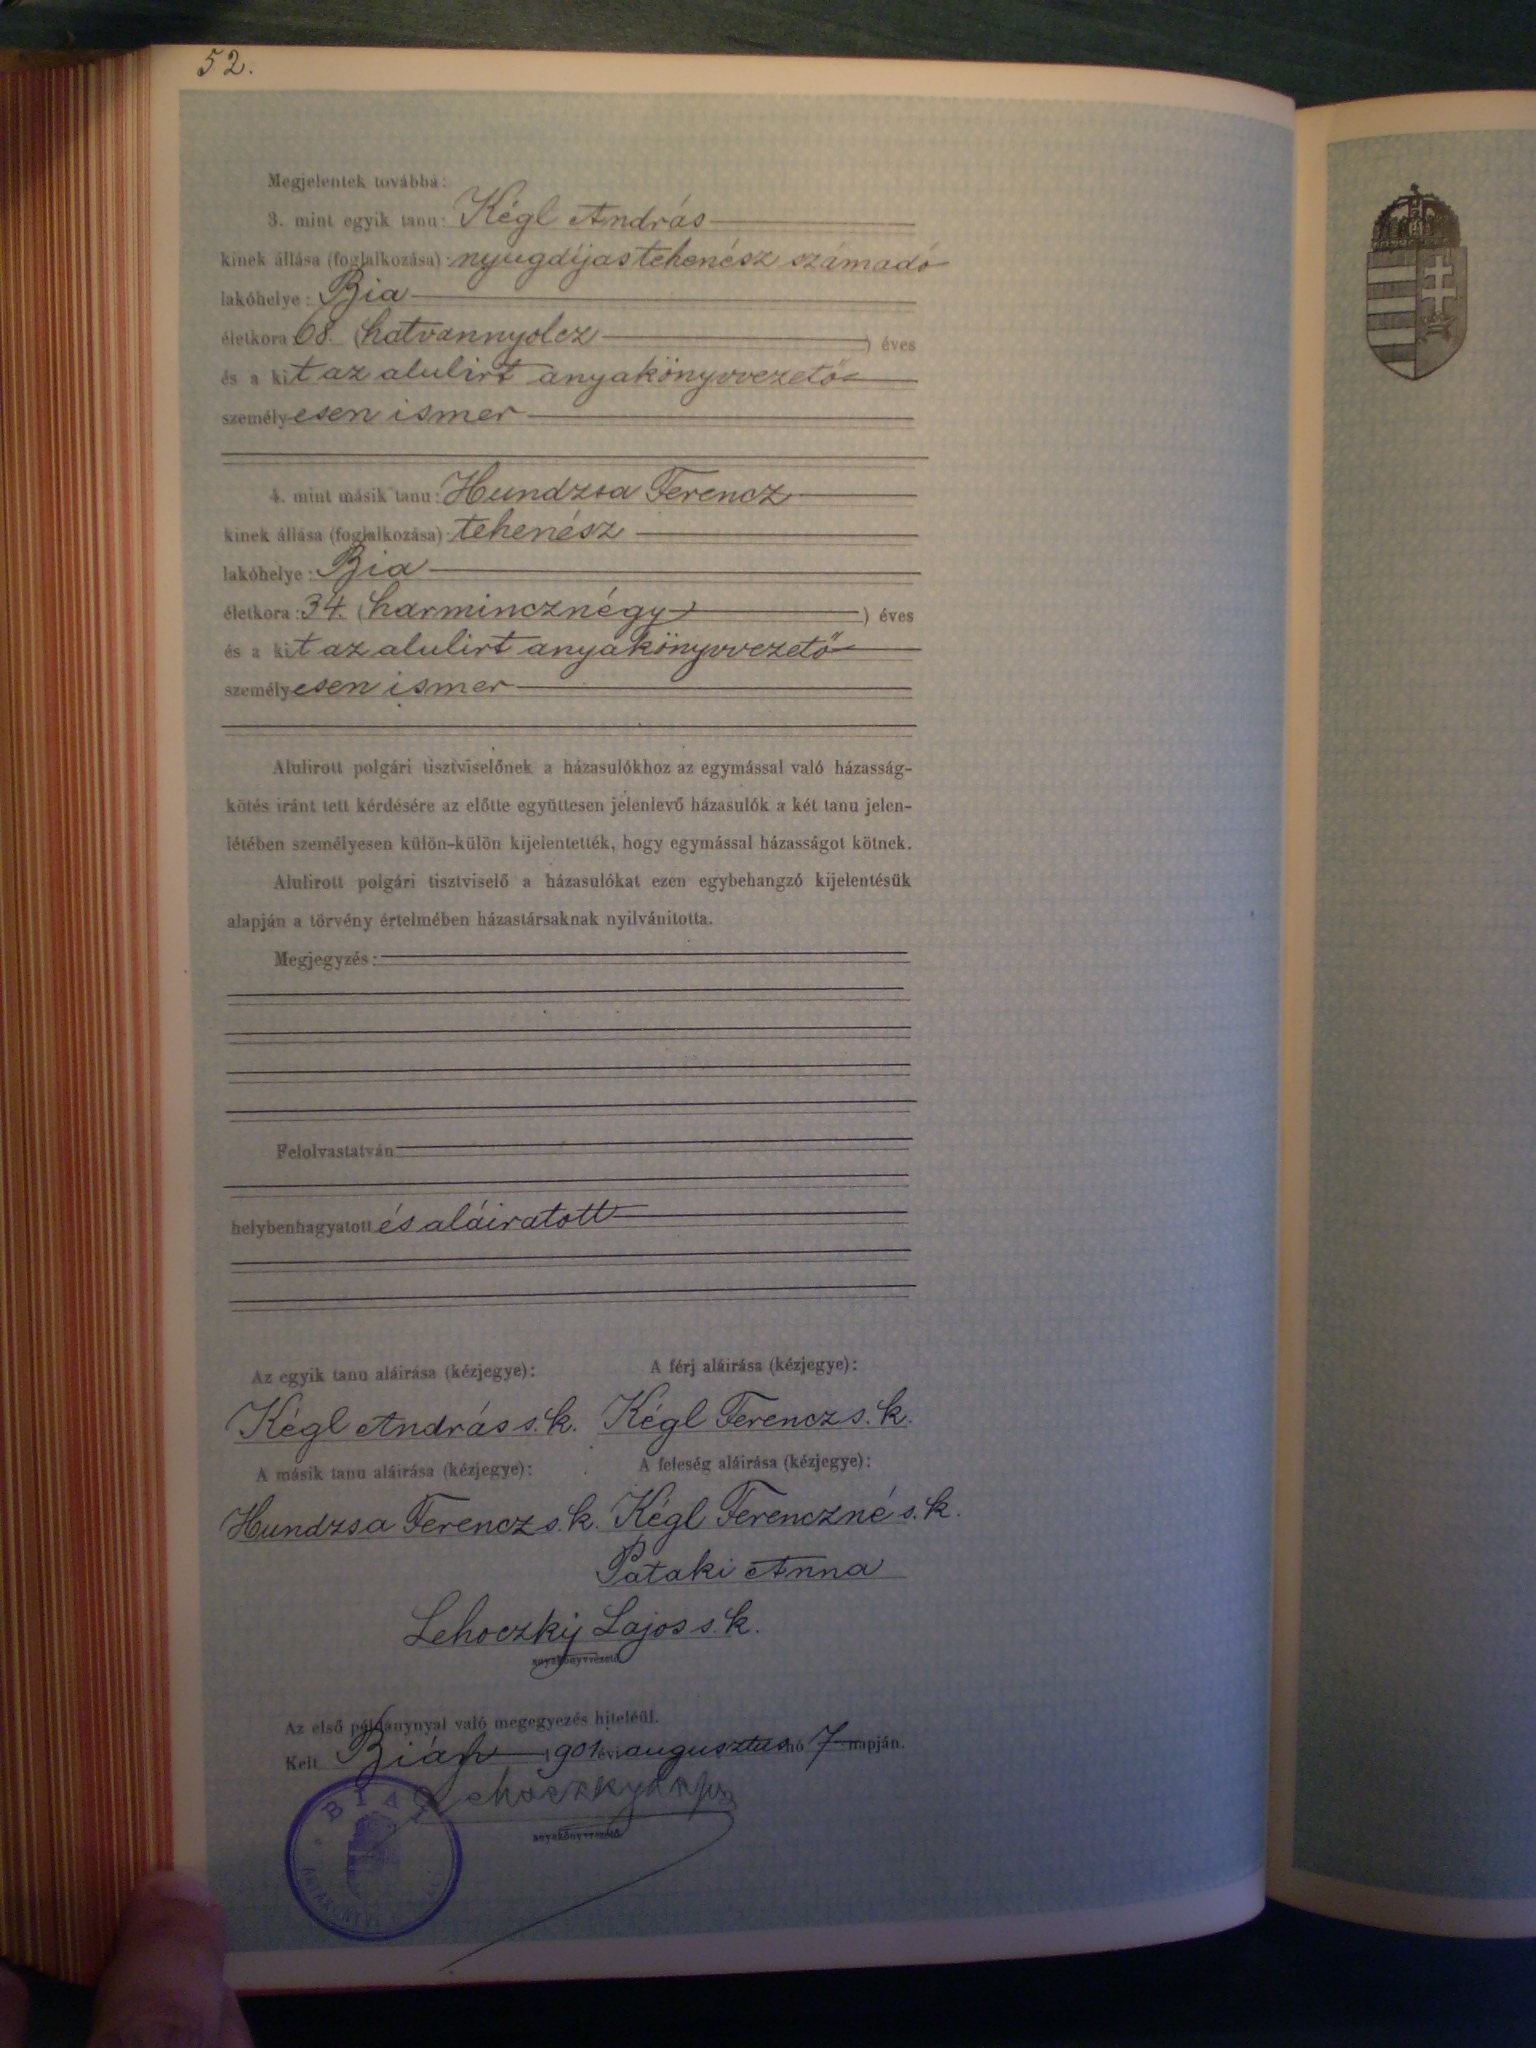 52.
Megjelentek továbbá:
3. mint egyik tanu: Kégl András
kinek állása (foglalkozása): nyugdíjas tehenész számadó
lakóhelye: Bia
életkora 68. (hatvannyolcz) éves
és a kit az alulirt anyakönyvvezető
személyesen ismer
4. mint másik tanu: Hundzsa Ferencz
kinek állása (foglalkozása): tehenész
lakóhelye: Bia
életkora: 34. (harmincznégy) éves
és a kit az alulirt anyakönyvvezető
személyesen ismer
Alulirott polgári tisztviselőnek a házasulókhoz az egymással való házasság-
kötés iránt tett kérdésére az előtte együttesen jelenlevő házasulók a két tanu jelen-
létében személyesen külön-külön kijelentették, hogy egymással házasságot kötnek.
Alulirott polgári tisztviselő a házasulókat ezen egybehangzó kijelentésük
alapján a törvény értelmében házastársaknak nyilvánitotta.
Megjegyzés:
Felolvastatván
helybenhagyatott és aláiratott
Az egyik tanu aláirása (kézjegye): A férj aláirása (kézjegye):
Kégl András s.k. Kégl Ferencz s.k.
A másik tanu aláirása (kézjegye): A feleség aláirása (kézjegye):
Hundzsa Ferencz s.k. Kégl Ferenczné s.k.
Pataki Anna
Lehoczky Lajos s.k.
anyakönyvvezető.
Az első példánynyal való megegyezés hiteléül.
Kelt Bián 1901 évi augusztus hó 7 napján.
Lehoczky Lajos
anyakönyvvezető.
BIAI